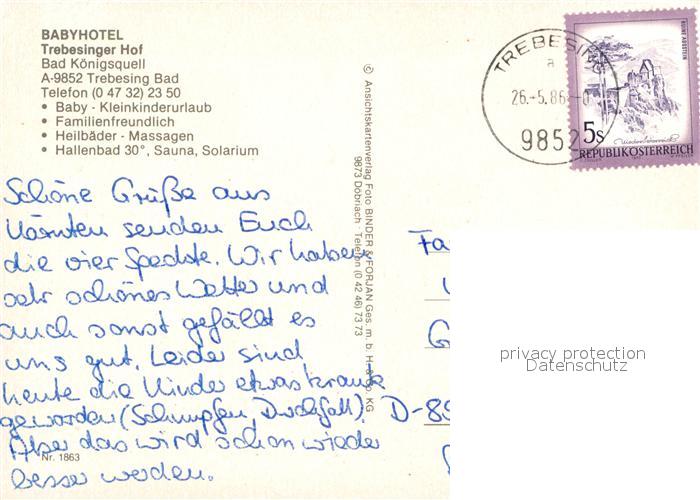 BABYHOTEL
Trebesinger Hof
Bad Königsquell
A-9852 Trebesing Bad
Telefon (0 47 32) 23 50
• Baby - Kleinkinderurlaub
• Familienfreundlich
• Heilbäder - Massagen
• Hallenbad 30°, Sauna, Solarium
Schöne Grüße aus
Kärnten senden Euch
die vier Spechte. Wir haben
sehr schönes Wetter und
auch sonst gefällt es
uns gut. Leider sind
heute die Kinder etwas krank
geworden (Schnupfen, Durchfall).
Aber das wird schon wieder
besser werden.
Nr. 1863
© Ansichtskartenverlag Foto BINDER & FORJAN Ges. m. b. H. & Co. KG
9873 Döbriach - Telefon (0 42 46) 73 73
TREBESING
a
26.-5.86
9852
RUINE AGGSTEIN
5s
Niederösterreich
REPUBLIK ÖSTERREICH
Fa
G
D-89
privacy protection
Datenschutz